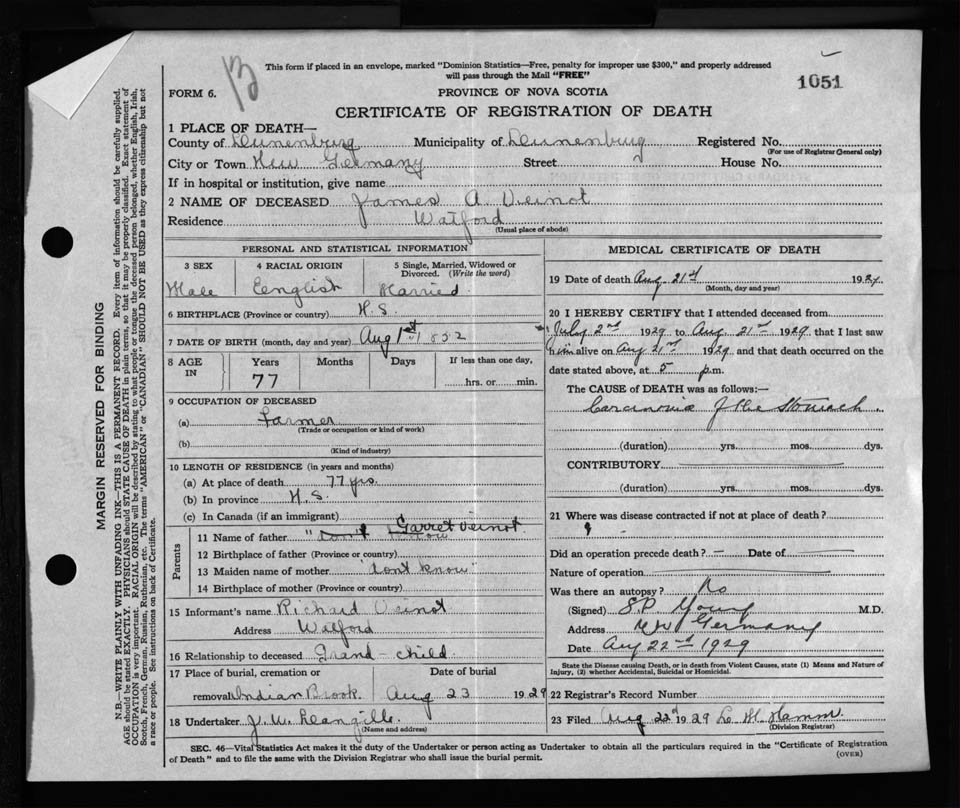 This form if placed in an envelope, marked "Dominion Statistics—Free, penalty for improper use $300," and properly addressed
will pass through the Mail "FREE"
1051
FORM 6.
PROVINCE OF NOVA SCOTIA
CERTIFICATE OF REGISTRATION OF DEATH
1 PLACE OF DEATH—
County of Lunenburg Municipality of Lunenburg Registered No.
(For use of Registrar General only)
City or Town New Germany Street House No.
If in hospital or institution, give name
2 NAME OF DECEASED James A. Veinot
Residence Watford
(Usual place of abode)
PERSONAL AND STATISTICAL INFORMATION
3 SEX 4 RACIAL ORIGIN 5 Single, Married, Widowed or
Divorced. (Write the word)
Male English Married
6 BIRTHPLACE (Province or country) N.S.
7 DATE OF BIRTH (month, day and year) Aug 1st 1852
8 AGE IN Years Months Days If less than one day,
77 hrs. or min.
9 OCCUPATION OF DECEASED
(a) Farmer
(Trade or occupation or kind of work)
(b)
(Kind of industry)
10 LENGTH OF RESIDENCE (in years and months)
(a) At place of death 77 yrs.
(b) In province N.S.
(c) In Canada (if an immigrant)
Parents
11 Name of father "Don't know Garret Veinot
12 Birthplace of father (Province or country)
13 Maiden name of mother "dont know"
14 Birthplace of mother (Province or country)
15 Informant's name Richard Veinot
Address Watford
16 Relationship to deceased Grand-child
17 Place of burial, cremation or Date of burial
removal Indian Brook Aug 23 1929
18 Undertaker J. W. Langille
(Name and address)
MEDICAL CERTIFICATE OF DEATH
19 Date of death Aug. 21st 1929
(Month, day and year)
20 I HEREBY CERTIFY that I attended deceased from
July 2nd 1929 to Aug. 21st 1929 that I last saw
him alive on Aug 21st 1929 and that death occurred on the
date stated above, at 5 p.m.
The CAUSE of DEATH was as follows:—
Carcinoma of the Stomach.
(duration) yrs. mos. dys.
CONTRIBUTORY
(duration) yrs. mos. dys.
21 Where was disease contracted if not at place of death?
Did an operation precede death? — Date of
Nature of operation
Was there an autopsy? No
(Signed) S P Young M.D.
Address New Germany
Date Aug 22nd 1929
State the Disease causing Death, or in death from Violent Causes, state (1) Means and Nature of
Injury, (2) whether Accidental, Suicidal or Homicidal.
22 Registrar's Record Number
23 Filed Aug 22nd 1929 Lo. H. Hamm.
(Division Registrar)
SEC. 46—Vital Statistics Act makes it the duty of the Undertaker or person acting as Undertaker to obtain all the particulars required in the "Certificate of Registration
of Death" and to file the same with the Division Registrar who shall issue the burial permit.
(OVER)
MARGIN RESERVED FOR BINDING
N.B.—WRITE PLAINLY WITH UNFADING INK—THIS IS A PERMANENT RECORD. Every item of information should be carefully supplied.
AGE should be stated EXACTLY. PHYSICIANS should STATE CAUSE OF DEATH in plain terms, so that it may be properly classified. Exact statement of
OCCUPATION is very important. RACIAL ORIGIN will be described by stating to what people or tongue the deceased person belonged, whether English, Irish,
Scotch, French, German, Russian, Ruthenian, etc. The terms "AMERICAN" or "CANADIAN" SHOULD NOT BE USED as they express citizenship but not
a race or people. See instructions on back of Certificate.